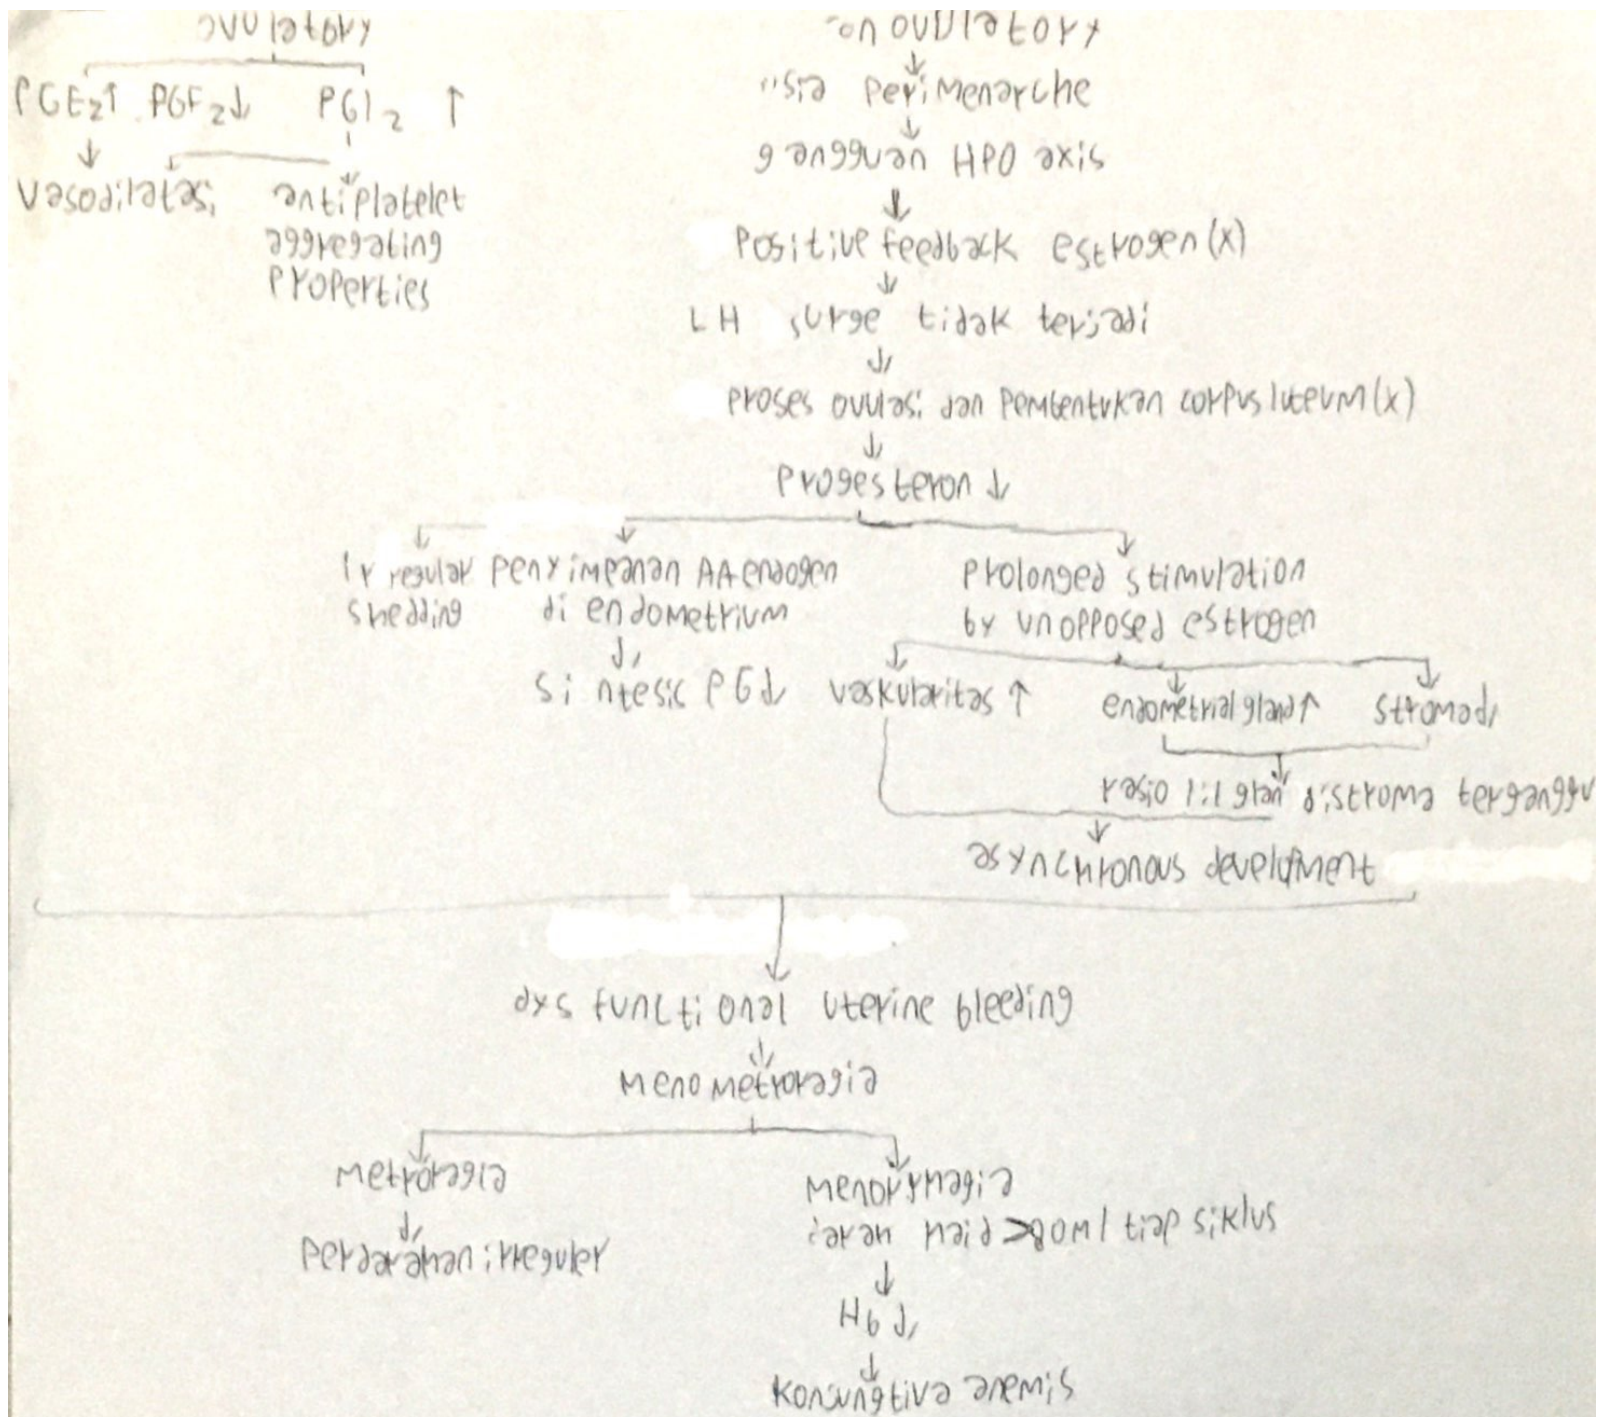 ovulatory
PGE2↑ PGF2↓ PGI2 ↑
vasodilatasi
antiplatelet
aggregating
properties
anovulatory
usia perimenarche
gangguan HPO axis
positive feedback estrogen (x)
LH surge tidak terjadi
proses ovulasi dan pembentukan corpus luteum (x)
progesteron ↓
Irregular
shedding
penyimpanan AA endogen
di endometrium
sintesis PG↓
prolonged stimulation
by unopposed estrogen
vaskularitas ↑
endometrial gland↑
stroma↓
rasio 1:1 gland: stroma terganggu
asynchronous development
dysfunctional uterine bleeding
menometroragia
metroragia
perdarahan irreguler
menorrhagia
darah haid >80ml tiap siklus
Hb ↓
konjungtiva anemis